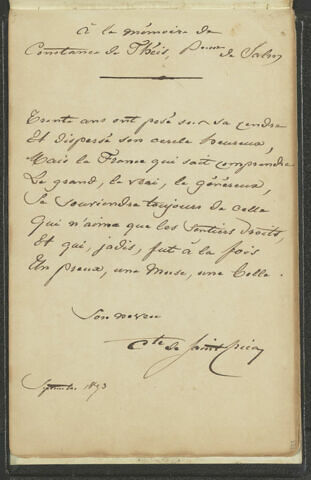 à la mémoire de
Constance de Theis, Pcesse de Salm
Trente ans ont pesé sur sa cendre
Et dispersé son cercle heureux,
Mais la France qui sait comprendre
Le grand, le vrai, le généreux,
Se souviendra toujours de celle
Qui n'aima que les sentiers droits,
Et qui, jadis, fut à la fois
Un preux, une Muse, une Belle.
Son neveu
Cte de Saint
Septembre 1873